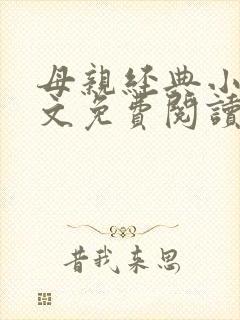 母親經典小
文免費閱讀
昔我来思